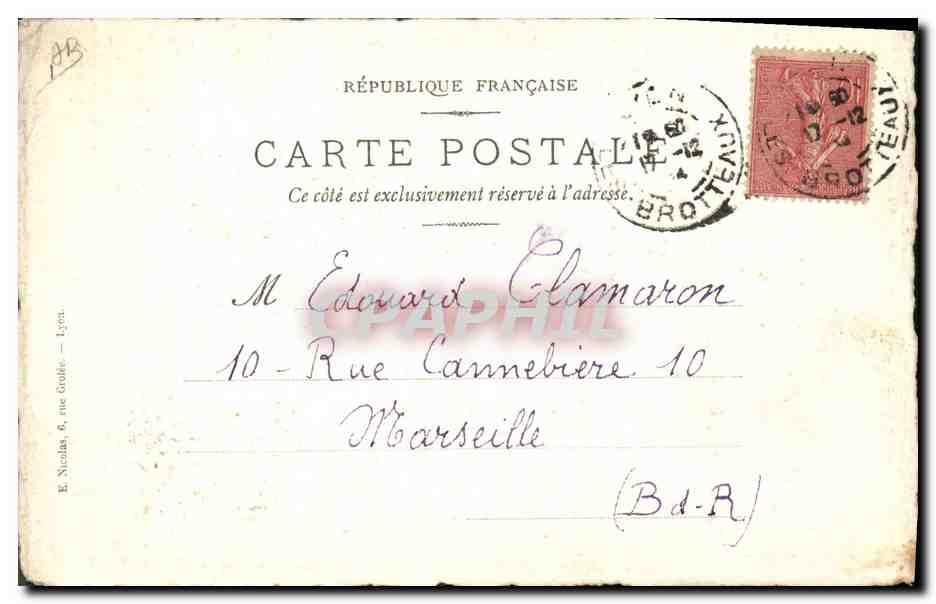 AB
RÉPUBLIQUE FRANÇAISE
CARTE POSTALE
Ce côté est exclusivement réservé à l'adresse.
BROTTEAUX
LES BROTTEAUX
M Edouard Clamaron
CPAPHIL
10 - Rue Cannebière 10
Marseille
(B d-R)
E. Nicolas, 6, rue Grolée. — Lyon.